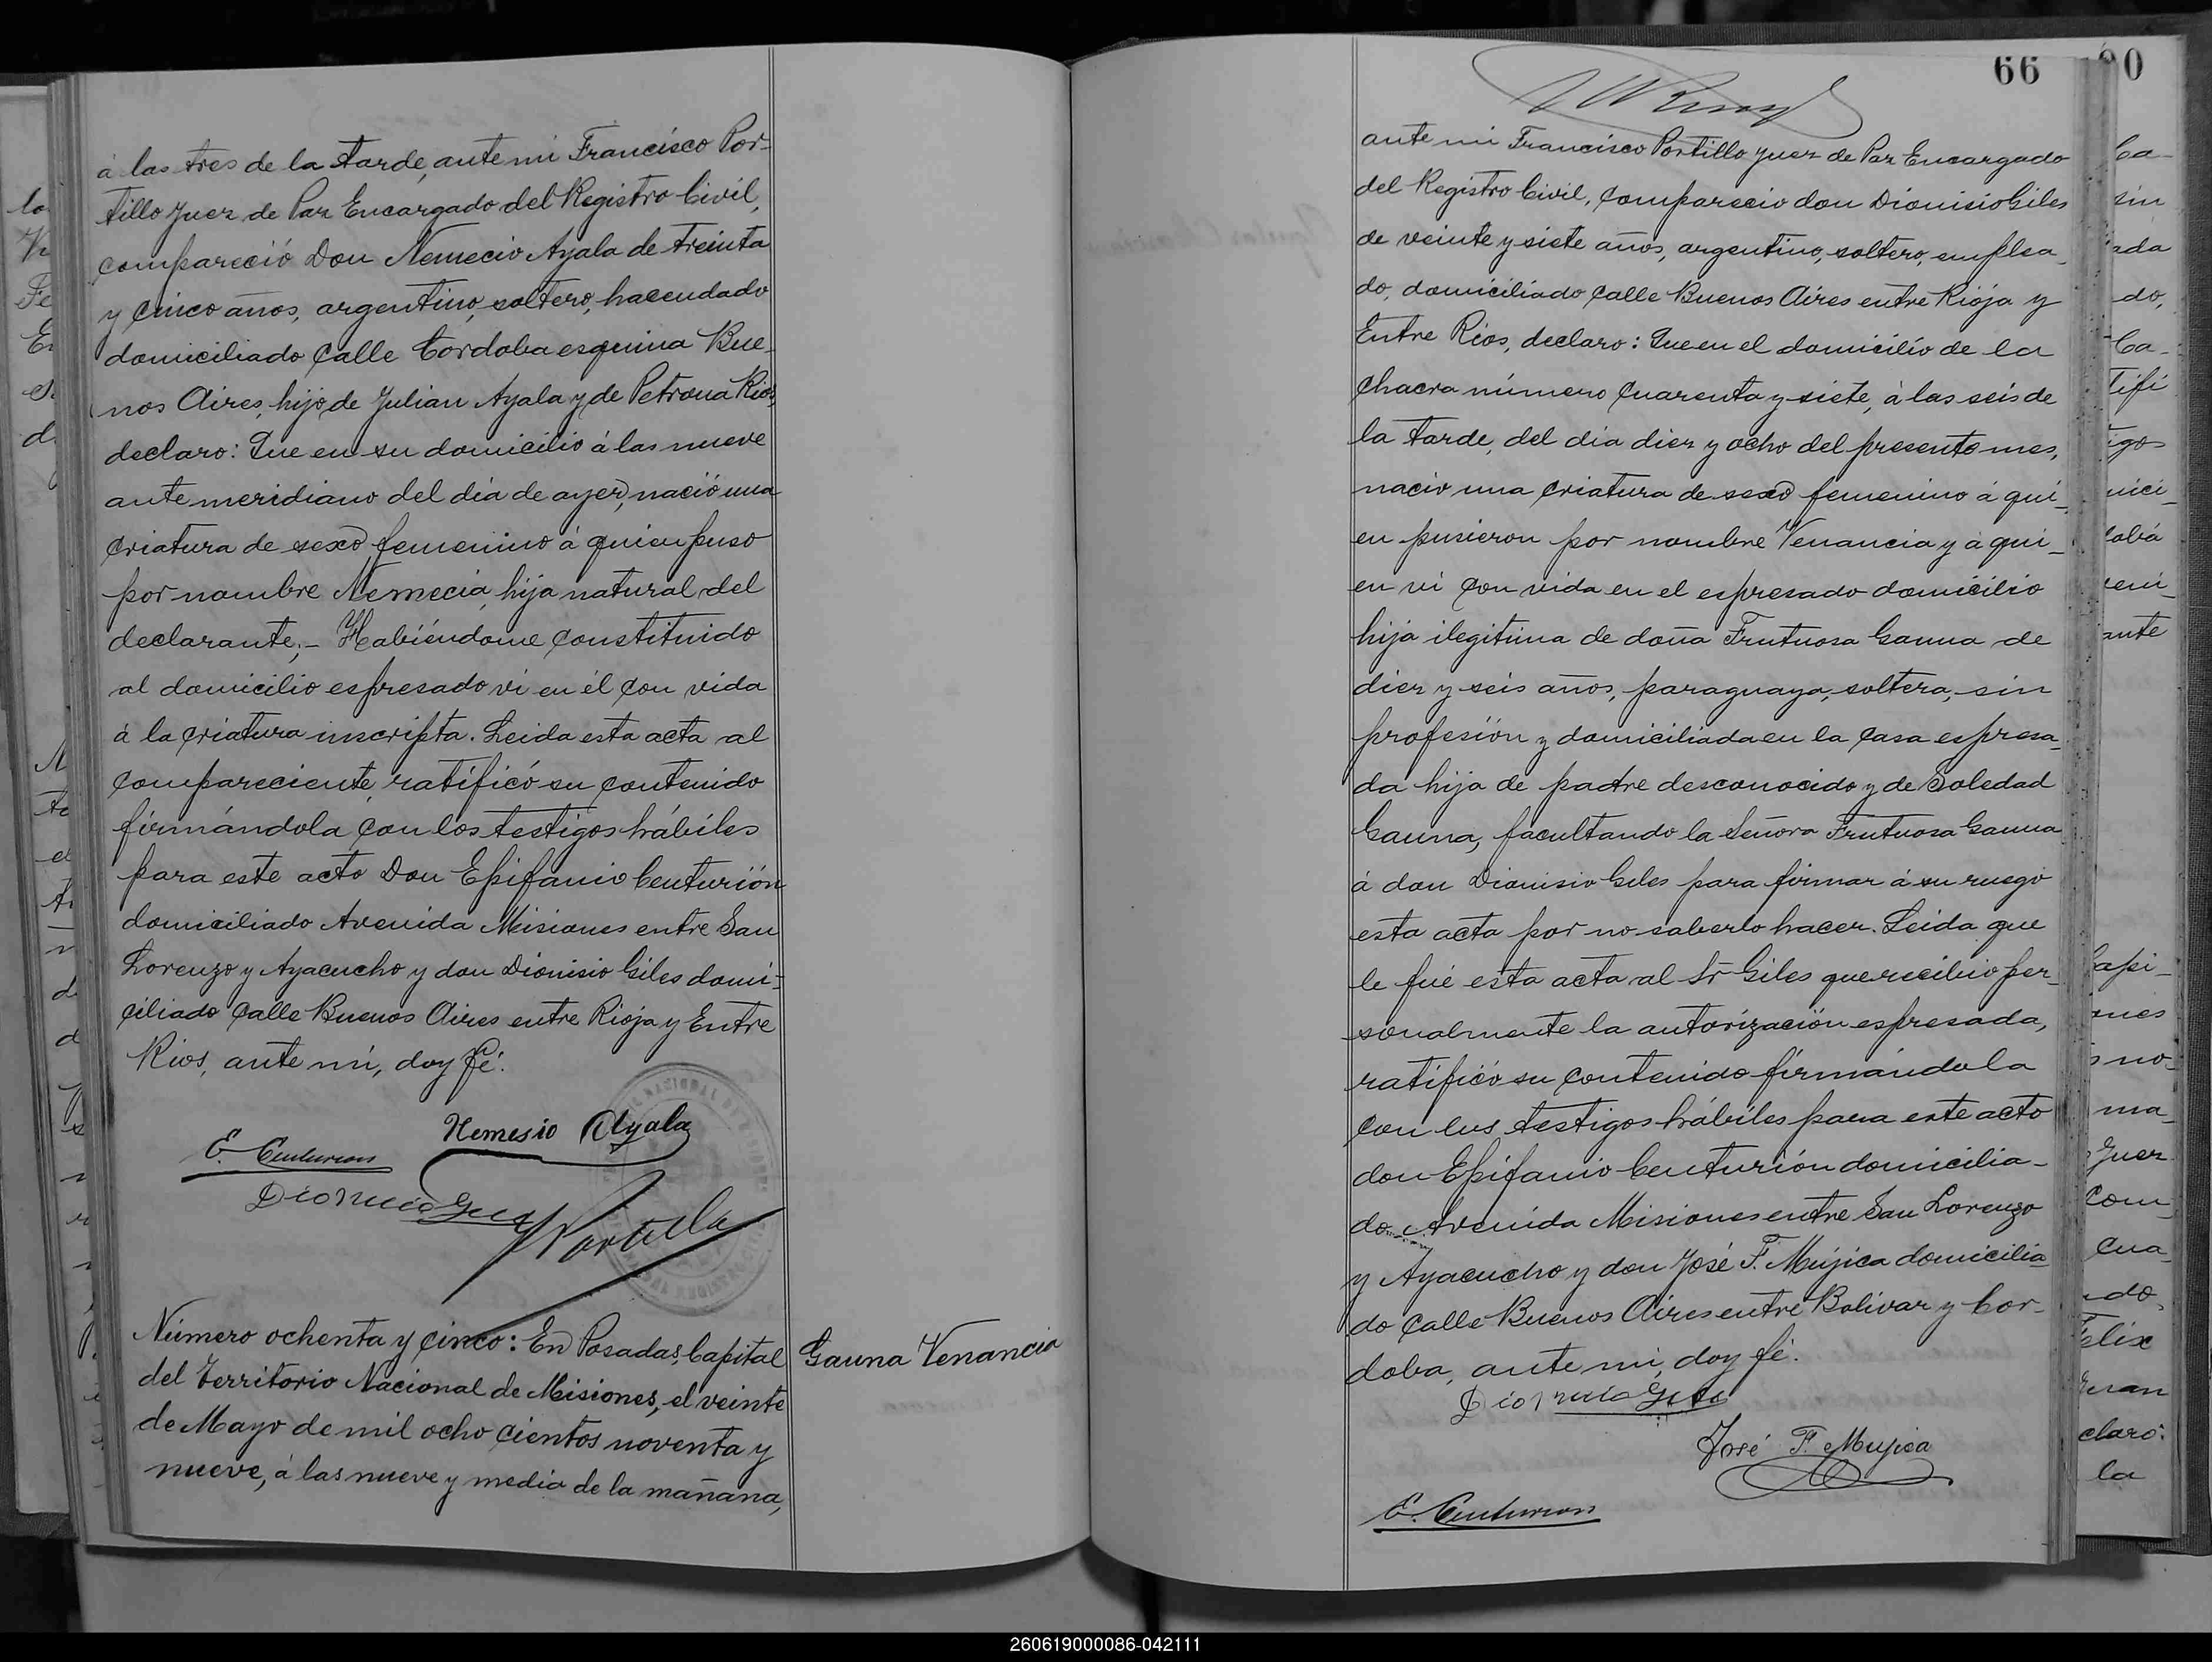 á las tres de la tarde, ante mi Francisco Por-
tillo Juez de Paz Encargado del Registro Civil,
compareció Don Nemecio Ayala de treinta
y cinco años, argentino, soltero, hacendado
domiciliado calle Cordoba esquina Bue-
nos Aires, hijo de Julian Ayala y de Petrona Rios,
declaro: Que en su domicilio á las nueve
ante meridiano del día de ayer, nació una
criatura de sexo femenino á quien puso
por nombre Nemecia, hija natural del
declarante;- Habiéndome constituido
al domicilio espresado vi en él con vida
á la criatura inscripta. Leida esta acta al
compareciente, ratificó su contenido
firmándola con los testigos hábiles
para este acto Don Epifanio Centurión
domiciliado Avenida Misiones entre San
Lorenzo y Ayacucho y don Dionisio Giles domi-
ciliado calle Buenos Aires entre Rioja y Entre
Rios, ante mi, doy fé.
Nemesio Ayala
E. Centurion
Dionicio Giles
Portillo
Número ochenta y cinco: En Posadas, Capital
del Territorio Nacional de Misiones, el veinte
de Mayo de mil ocho cientos noventa y
nueve, á las nueve y media de la mañana,
Gauna Venancia
66
ante mi Francisco Portillo Juez de Paz Encargado
del Registro Civil, comparecio don Dionisio Giles
de veinte y siete años, argentino, soltero, emplea_
do, domiciliado calle Buenos Aires entre Rioja y
Entre Rios, declaro: Que en el domicilio de la
chacra número cuarenta y siete, á las seis de
la tarde, del dia diez y ocho del presente mes,
nacio una criatura de sexo femenino á qui_
en pusieron por nombre Venancia y á qui_
en vi con vida en el espresado domicilio
hija ilegitima de doña Frutuosa Gauna de
diez y seis años, paraguaya, soltera, sin
profesión y domiciliada en la casa espresa_
da hija de padre desconocido y de Soledad
Gauna, facultando la Señora Frutuosa Gauna
á don Dionisio Giles para firmar á su ruego
esta acta por no saberlo hacer. Leida que
le fué esta acta al Sr Giles que recibio per_
sonalmente la autorización espresada,
ratificó su contenido firmándola
con los testigos hábiles para este acto
don Epifanio Centurión domicilia-
do Avenida Misiones entre San Lorenzo
y Ayacucho y don José F. Mujica domicilia
do calle Buenos Aires entre Bolivar y Cor-
doba, ante mi, doy fé.
Dionicio Giles
José F. Mujica
E. Centurion
90
Ca-
sin
do,
Ca-
Tifi
nici_
ante
Capi_
nes
no
ma_
Juez
com_
cua_
do,
claró:
la
260619000086-042111